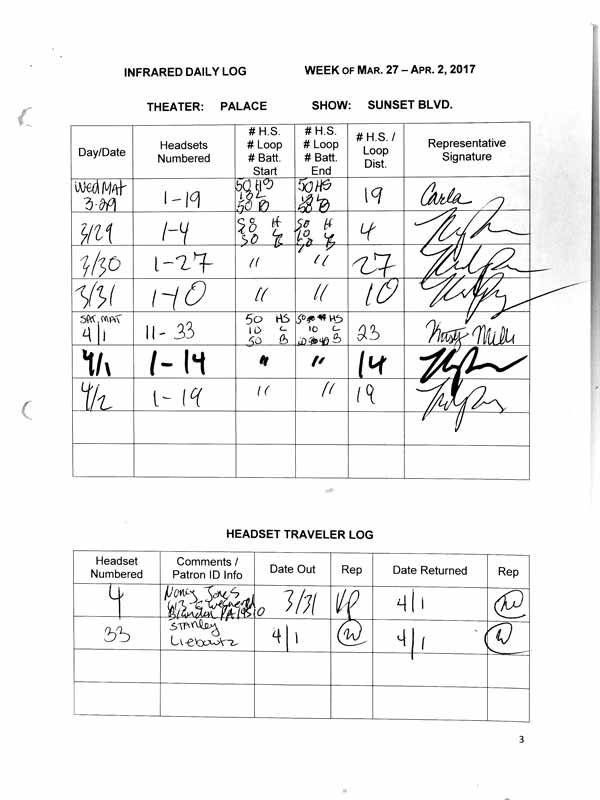 INFRARED DAILY LOG WEEK OF MAR. 27 – APR. 2, 2017
THEATER: PALACE SHOW: SUNSET BLVD.
Day/Date Headsets Numbered # H.S. # Loop # Batt. Start # H.S. # Loop # Batt. End # H.S. / Loop Dist. Representative Signature
Wed MAT 3-29 1-19 50 HS 10 L 50 B 50 HS 50 B 19 Carla
3/29 1-4 50 H L 50 B 50 H 10 L 50 B 4
3/30 1-27 " " 27
3/31 1-10 " " 10
SAT. MAT 4/1 11-33 50 HS 10 L 50 B HS 10 L B 23
4/1 1-14 " " 14
4/2 1-19 " " 19
HEADSET TRAVELER LOG
Headset Numbered Comments / Patron ID Info Date Out Rep Date Returned Rep
4 Nancy Jones PA 3/31 VP 4/1
33 STANley Liebowitz 4/1 4/1
3